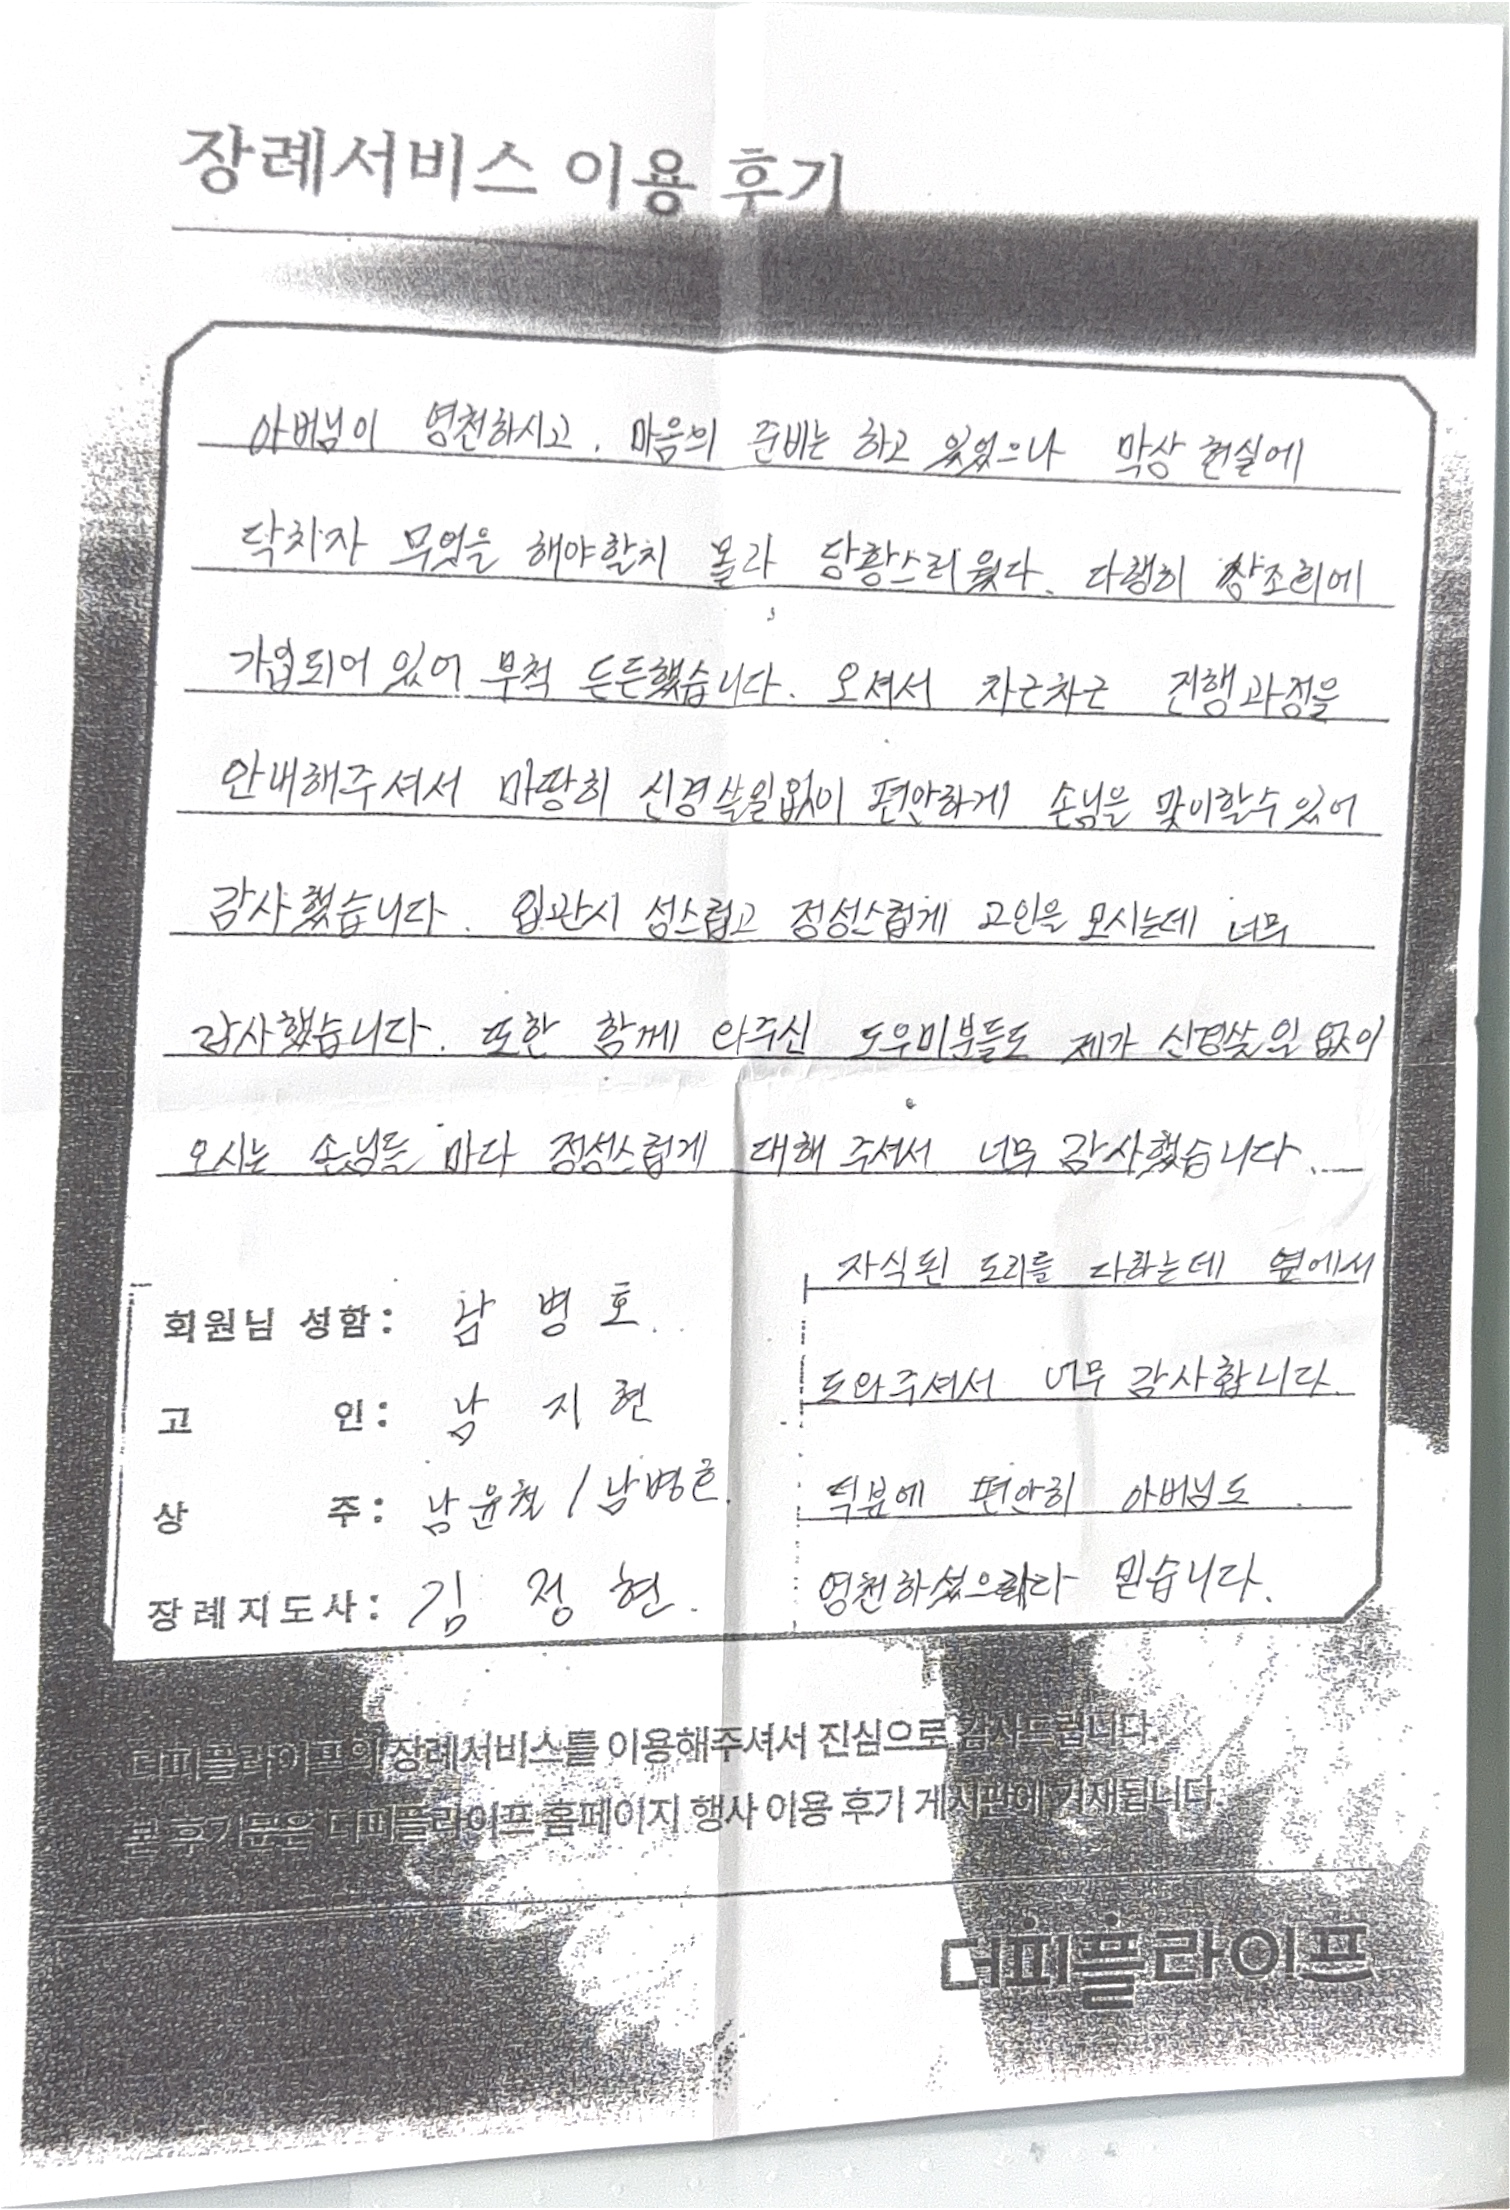 장례서비스 이용 후기
아버님이 영천하시고, 마음의 준비는 하고 있었으나 막상 현실에
닥치자 무엇을 해야할지 몰라 당황스러웠다. 다행히 상조회에
가입되어 있어 무척 든든했습니다. 오셔서 차근차근 진행과정을
안내해주셔서 마땅히 신경쓸일없이 편안하게 손님을 맞이할수있어
감사했습니다. 입관시 성스럽고 정성스럽게 고인을 모시는데 너무
감사했습니다. 또한 함께 와주신 도우미분들도 제가 신경쓸일없이
오시는 손님들 마다 정성스럽게 대해 주셔서 너무 감사했습니다.
자식된 도리를 다하는데 옆에서
도와주셔서 너무 감사합니다.
덕분에 편안히 아버님도
영천하셨으리라 믿습니다.
회원님 성함: 남병호
고 인: 남지현
상 주: 남윤철 / 남병호
장례지도사: 김정현
더피플라이프의 장례서비스를 이용해주셔서 진심으로 감사드립니다.
본 후기문은 더피플라이프 홈페이지 행사 이용 후기 게시판에 기재됩니다.
더피플라이프